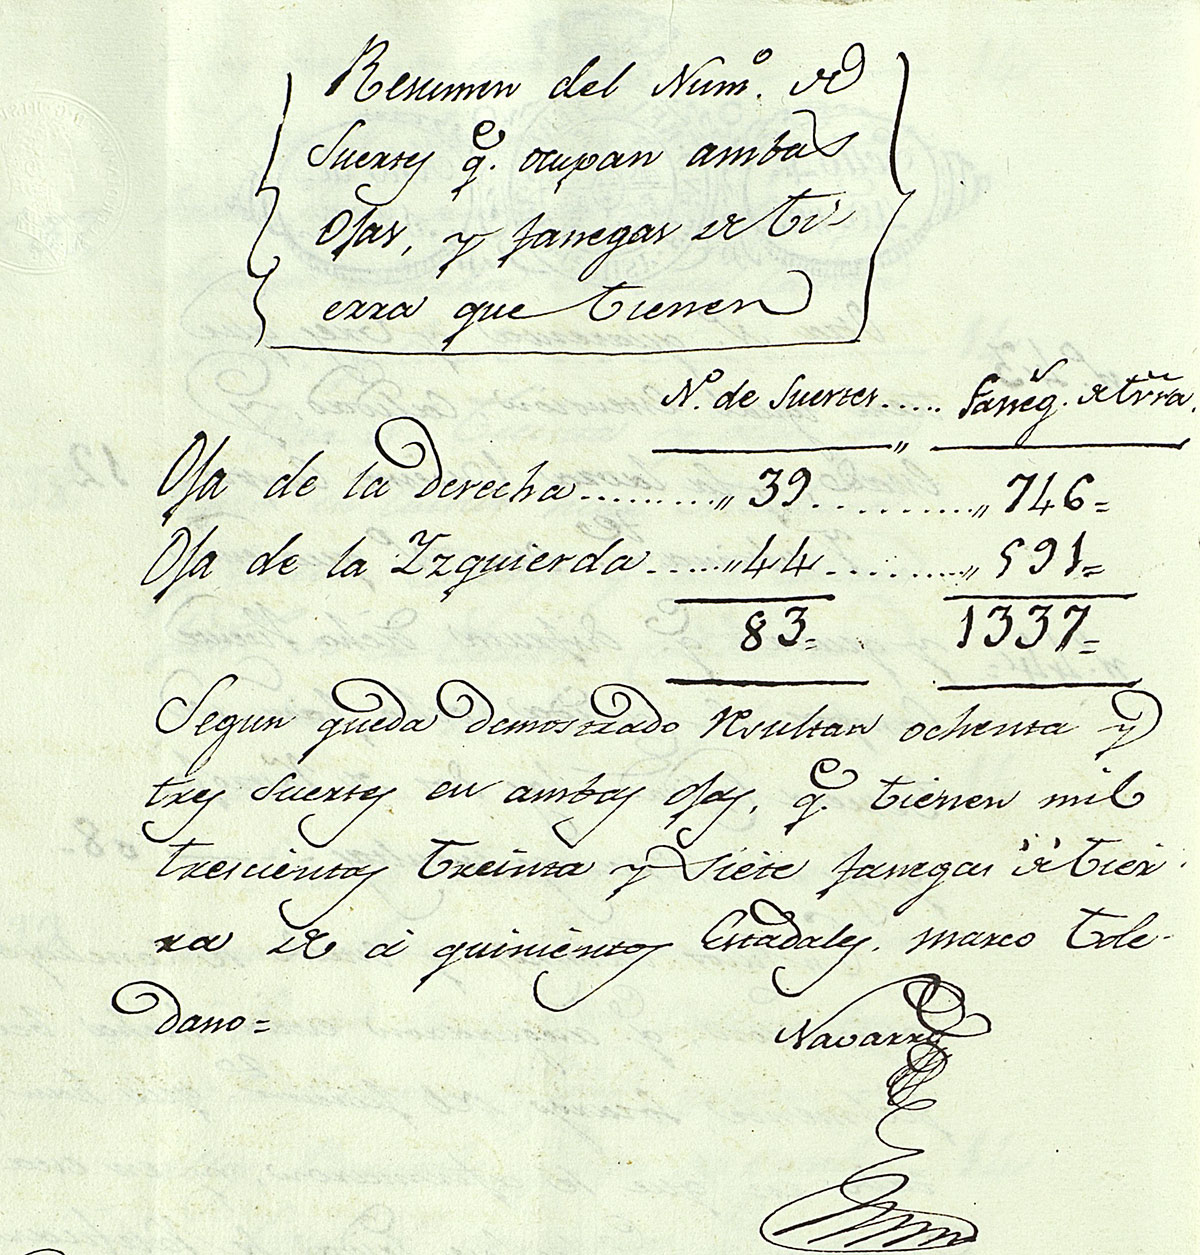 Resumen del Num.º de
Suertes q.e ocupan ambas
Ojas, y fanegas de ti-
erra que tienen
N.º de Suertes..... Faneg. de trra.
Oja de la derecha.........,, 39..........,, 746=
Oja de la Yzquierda......,, 44..........,, 591=
83= 1337=
Segun queda demostrado resultan ochenta y
tres suertes en ambas ojas, q.e tienen mil
trescientas treinta y siete fanegas de tier-
ra de á quinientos Estadales, marco tole-
dano=
Navarro